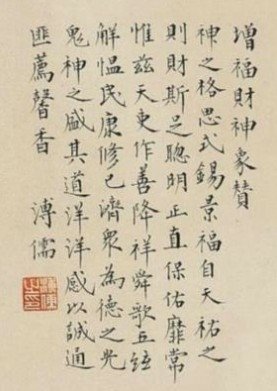 增福財神象贊
神之格思式錫景福自天祐之
則財斯足聰明正直保佑靡常
惟茲天吏作善降祥舜歌五絃
解慍民康修己濟眾為德之光
鬼神之盛其道洋洋感以誠通
匪薦馨香 溥儒